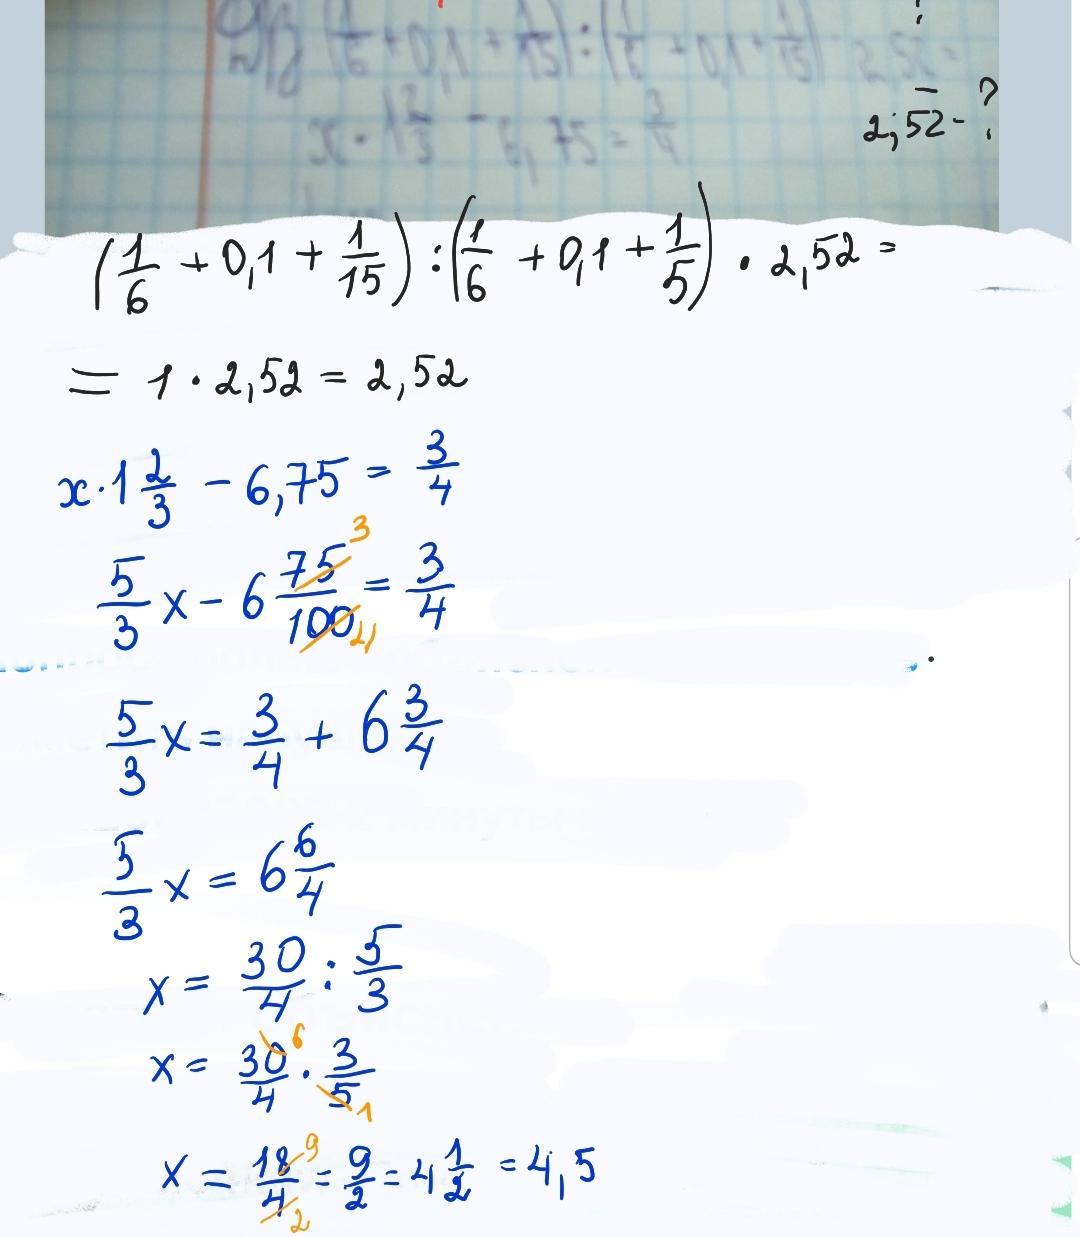 (1/6 + 0,1 + 1/15) : (1/6 + 0,1 + 1/15) · 2,52 =
x · 1 2/3 - 6,75 = 3/4
2,52 - ?
(1/6 + 0,1 + 1/15) : (1/6 + 0,1 + 1/5) · 2,52 =
= 1 · 2,52 = 2,52
x · 1 2/3 - 6,75 = 3/4
5/3 x - 6 75/100 = 3/4
3
4
5/3 x = 3/4 + 6 3/4
5/3 x = 6 6/4
x = 30/4 : 5/3
x = 30/4 · 3/5
6
1
x = 18/4 = 9/2 = 4 1/2 = 4,5
9
2